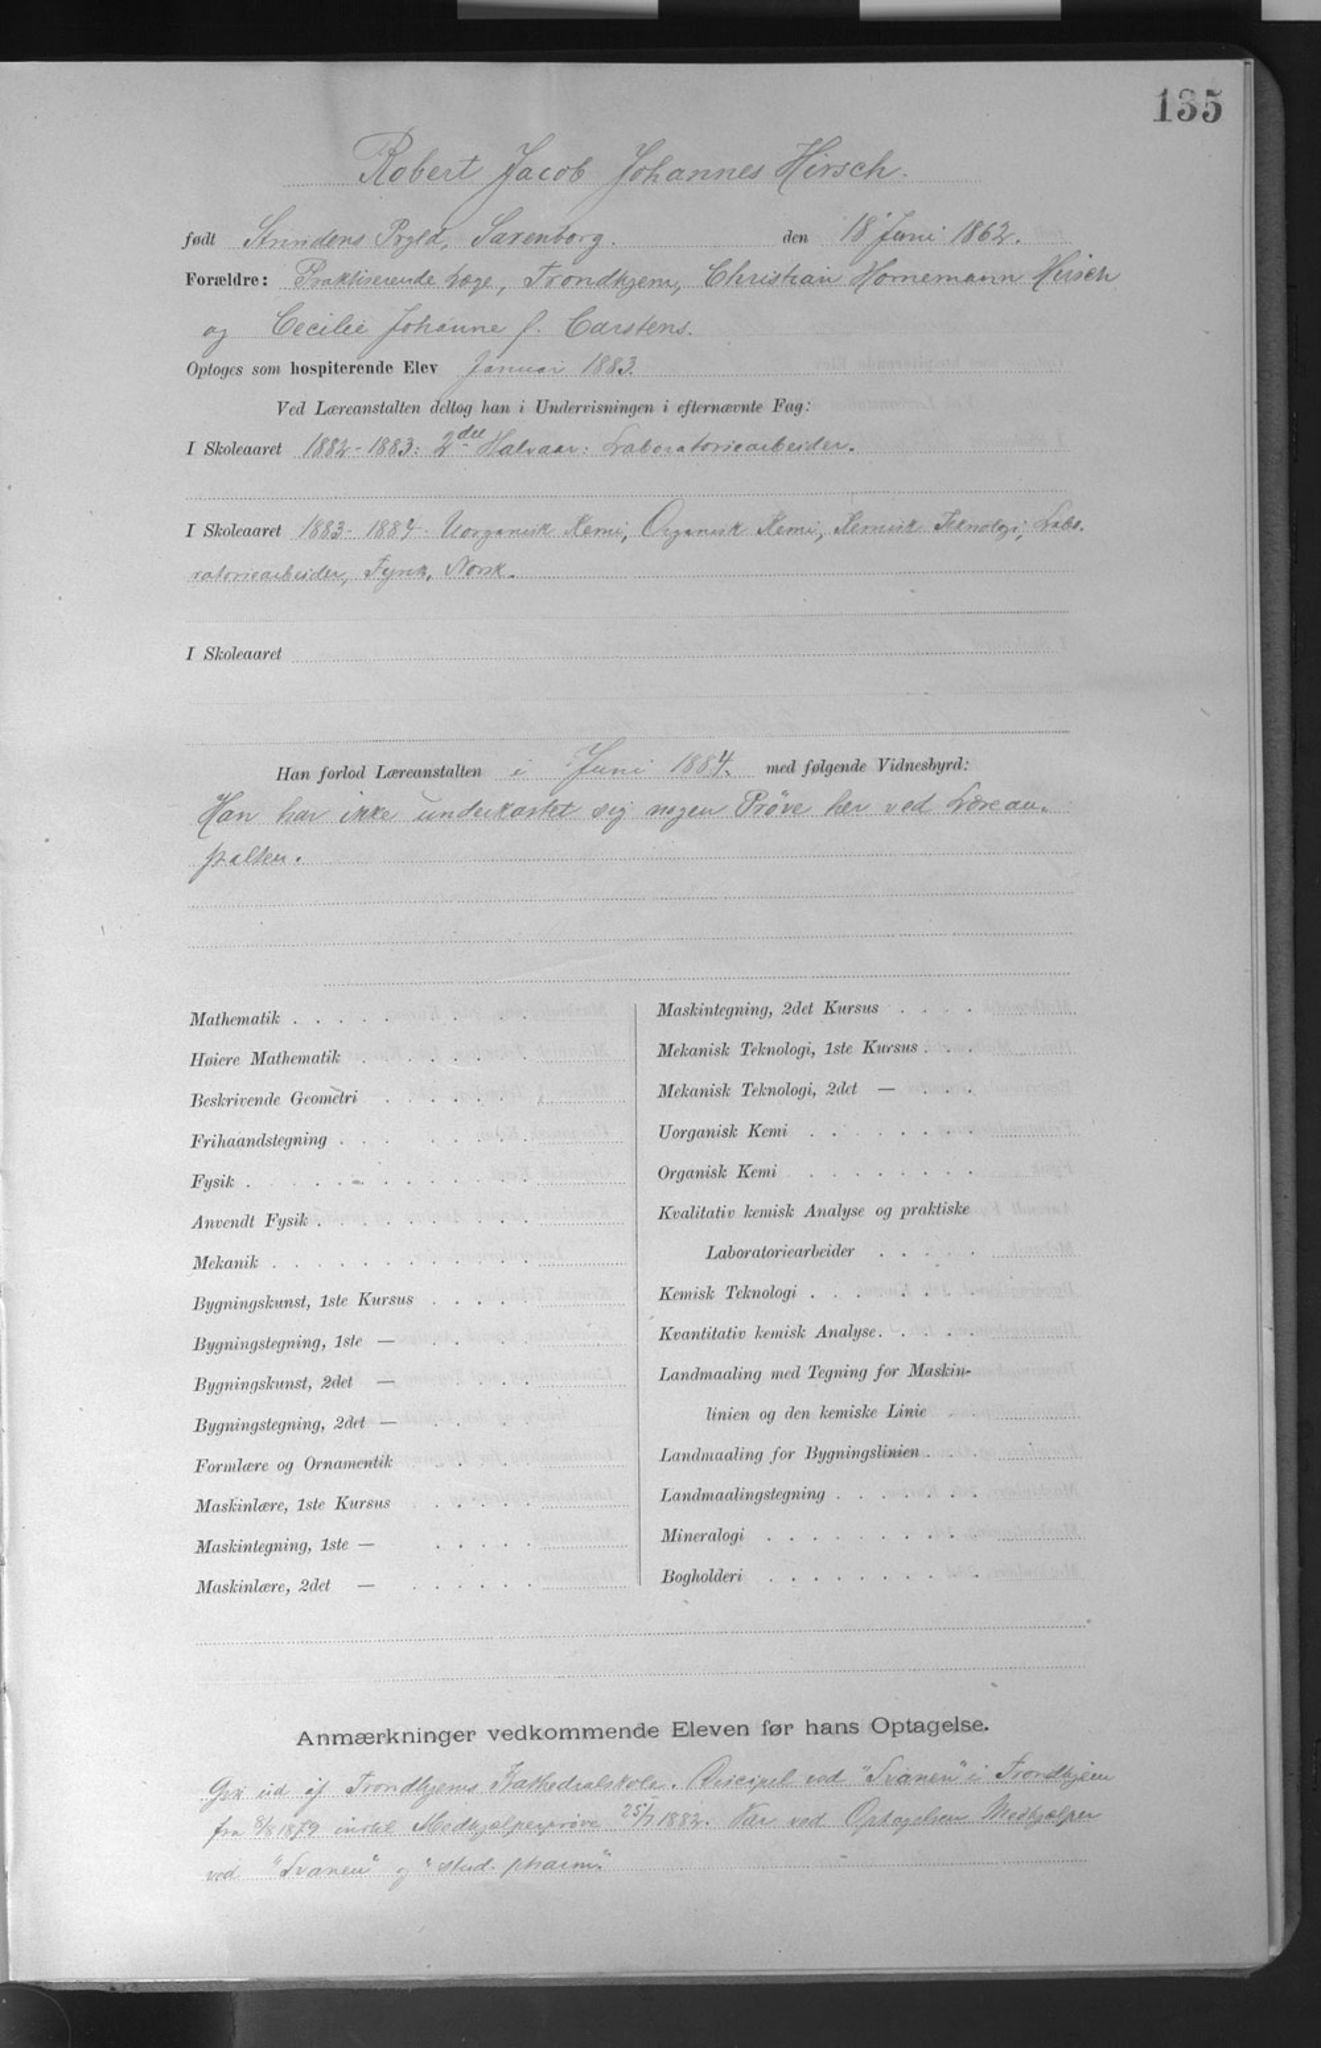 135
Robert Jacob Johannes Hirsch.
født Strindens Prgld, Saxenborg. den 18 Juni 1862.
Forældre: Praktiserende Læge, Trondhjem, Christian Hornemann Hirsch
og Cecilie Johanne f. Carstens.
Optoges som hospiterende Elev Januar 1883.
Ved Læreanstalten deltog han i Undervisningen i efternævnte Fag:
I Skoleaaret 1882-1883: 2det Halvaar: Laboratoriearbeider.
I Skoleaaret 1883-1884. Uorganisk Kemi, Organisk Kemi, Kemisk Teknologi, Labo-
ratoriearbeider, Fysik, Norsk.
I Skoleaaret
Han forlod Læreanstalten i Juni 1884. med følgende Vidnesbyrd:
Han har ikke underkastet sig nogen Pröve her ved Lærean-
stalten.
Mathematik
Høiere Mathematik
Beskrivende Geometri
Frihaandstegning
Fysik
Anvendt Fysik
Mekanik
Bygningskunst, 1ste Kursus
Bygningstegning, 1ste —
Bygningskunst, 2det —
Bygningstegning, 2det —
Formlære og Ornamentik
Maskinlære, 1ste Kursus
Maskintegning, 1ste —
Maskinlære, 2det —
Maskintegning, 2det Kursus
Mekanisk Teknologi, 1ste Kursus
Mekanisk Teknologi, 2det —
Uorganisk Kemi
Organisk Kemi
Kvalitativ kemisk Analyse og praktiske
Laboratoriearbeider
Kemisk Teknologi
Kvantitativ kemisk Analyse
Landmaaling med Tegning for Maskin-
linien og den kemiske Linie
Landmaaling for Bygningslinien
Landmaalingstegning
Mineralogi
Bogholderi
Anmærkninger vedkommende Eleven før hans Optagelse.
Gik ud af Trondhjems Kathedralskole. Discipel ved "Svanen" i Trondhjem
fra 8/8 1879 indtil Medhjælperprøve 25/7 1882. Var ved Optagelsen Medhjælper
ved "Svanen" og "stud. pharm."